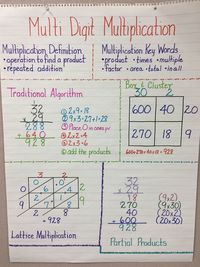 Multi Digit Multiplication
Multiplication Definition
• operation to find a product
• repeated addition
Multiplication Key Words
• product • times • multiple
• factor • area • total • in all
Traditional Algorithm
32
x 29
288
+ 640
928
① 2x9=18
② 9x3=27+1=28
③ Place 0 in ones pv
④ 2x2=4
⑤ 2x3=6
⑥ add the products
Box & Cluster
30
600 40 20
270 18 9
600+270+40+18=928
3 2
2
9
2 8
= 928
Lattice Multiplication
32
x 29
18 (9x2)
270 (9x30)
40 (20x2)
+ 600 (20x30)
928
Partial Products